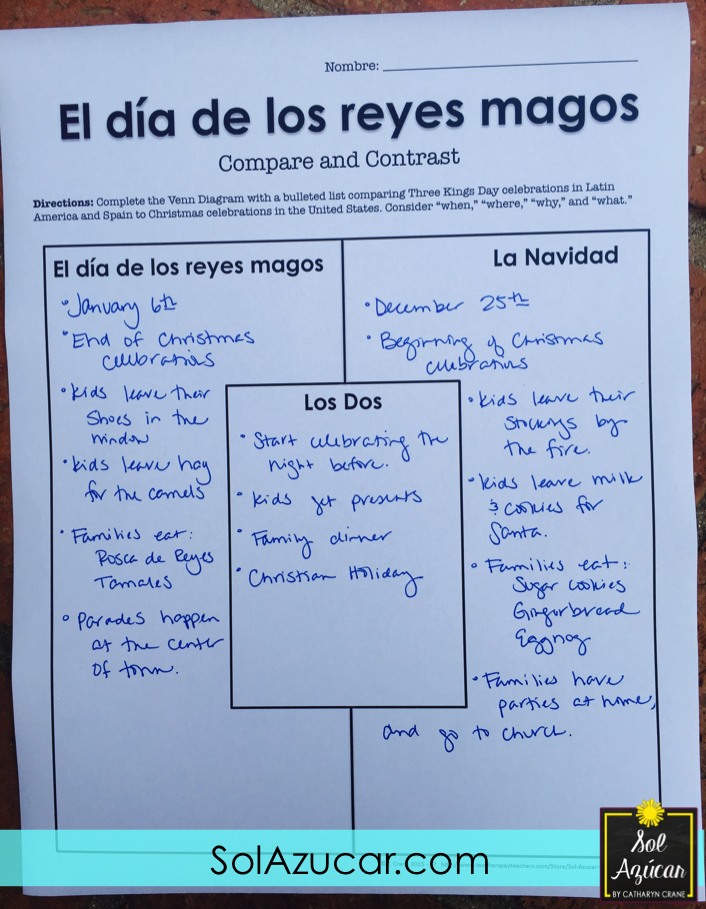 Nombre:
El día de los reyes magos
Compare and Contrast
Directions: Complete the Venn Diagram with a bulleted list comparing Three Kings Day celebrations in Latin
America and Spain to Christmas celebrations in the United States. Consider “when,” “where,” “why,” and “what.”
El día de los reyes magos
• January 6th
• End of Christmas
celebrations
• kids leave their
shoes in the
window
• kids leave hay
for the camels
• Families eat:
Rosca de Reyes
Tamales
• Parades happen
at the center
of town.
Los Dos
• Start celebrating the
night before.
• kids get presents
• Family dinner
• Christian Holiday
La Navidad
• December 25th
• Beginning of Christmas
celebrations
• kids leave their
stockings by
the fire.
• kids leave milk
& cookies for
Santa.
• Families eat:
Sugar cookies
Gingerbread
Eggnog
• Families have
parties at home,
and go to church.
SolAzucar.com
Sol
Azúcar
BY CATHARYN CRANE